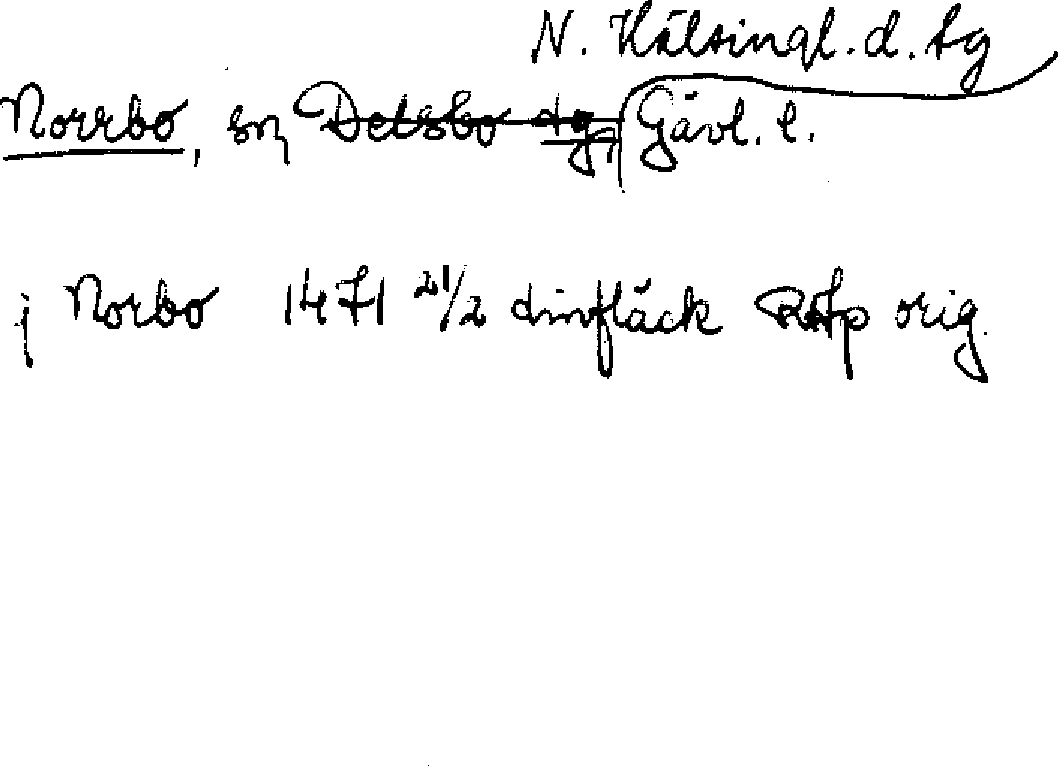 N. Hälsingl. d. tg
Norrbo, sn Delsbo tg, Gävl. l.
j Norbo 1471 21/2 Arnfläck RApp orig.